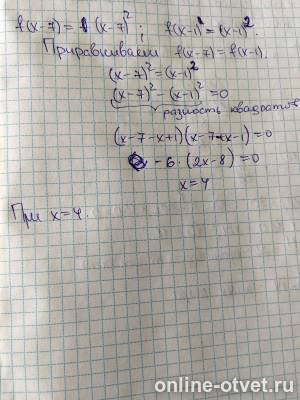 f(x-7)=(x-7)²; f(x-1)=(x-1)².
Приравниваем f(x-7)=f(x-1).
(x-7)²=(x-1)²
(x-7)²-(x-1)²=0
разность квадратов
(x-7-x+1)(x-7+x-1)=0
-6·(2x-8)=0
x=4
При x=4.
online-otvet.ru